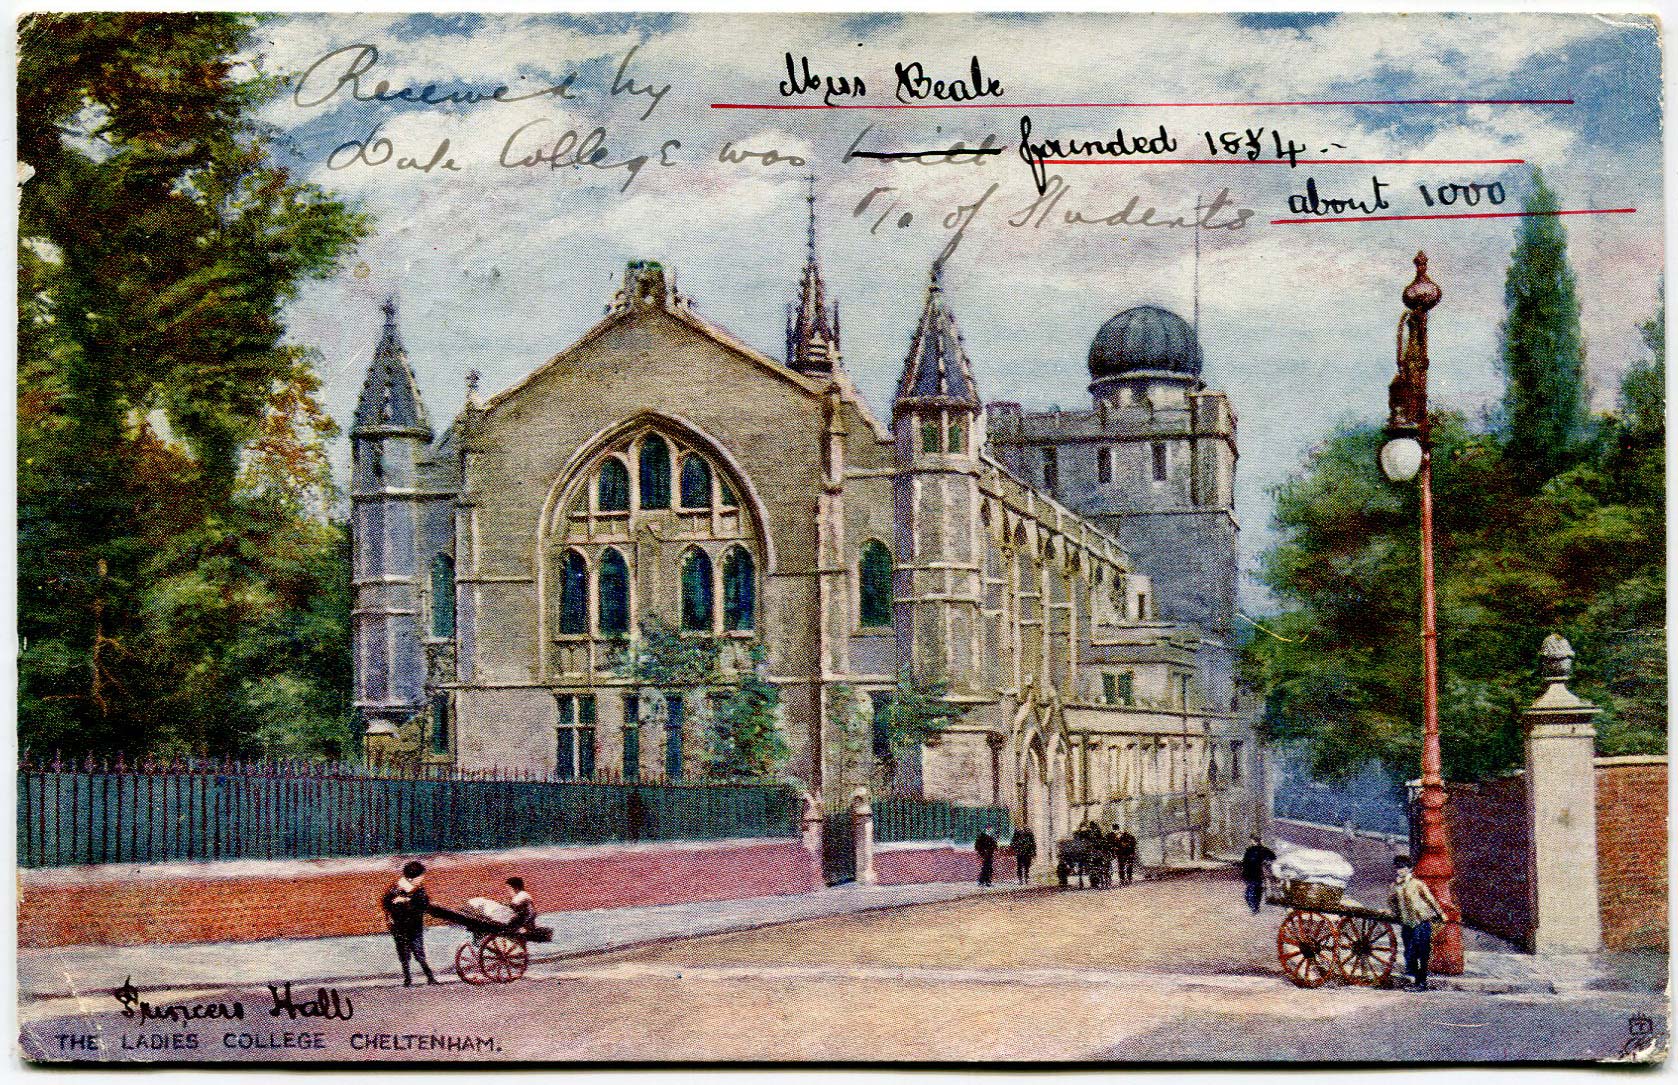 Received by Miss Beale
Date College was built founded 1854.-
% of Students about 1000
Princess Hall
THE LADIES COLLEGE CHELTENHAM.